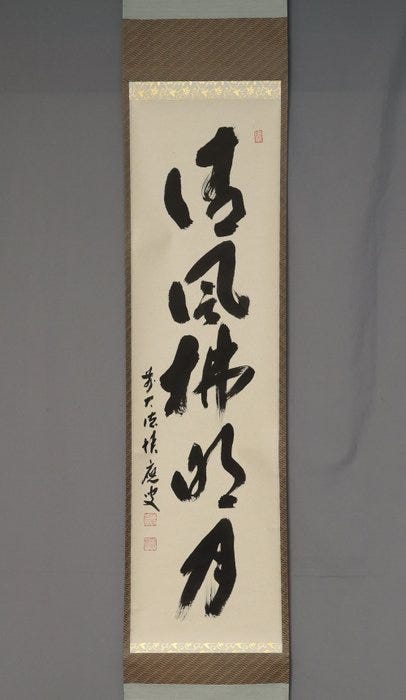 清風拂明月
前大徳積應叟